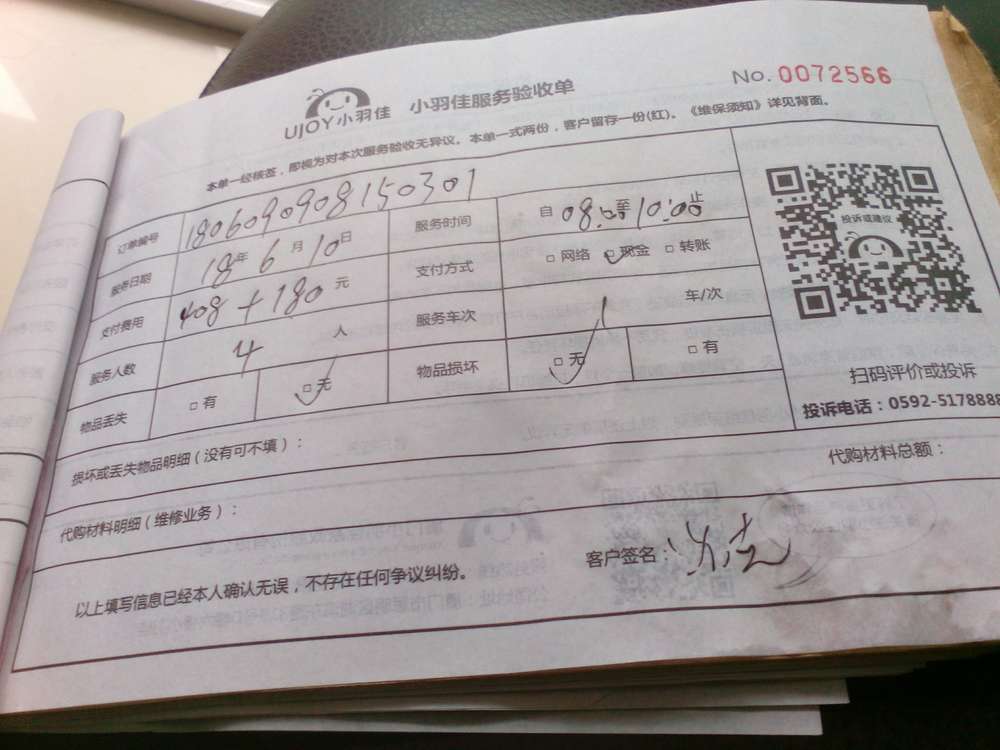 No. 0072566
UJOY小羽佳 小羽佳服务验收单
本单一经核签，即视为对本次服务验收无异议。本单一式两份，客户留存一份(红)。《维保须知》详见背面。
订单编号 1806090908150301 服务时间 自 08:00 至 10:00 止
服务日期 18年 6月 10日 支付方式 □ 网络 □ 现金 □ 转账
支付费用 408+180 元 服务车次 1 车/次
服务人数 4 人 物品损坏 □ 无 □ 有
物品丢失 □ 有 □ 无
投诉或建议
扫码评价或投诉
投诉电话：0592-5178888
损坏或丢失物品明细（没有可不填）：
代购材料明细（维修业务）： 代购材料总额：
以上填写信息已经本人确认无误，不存在任何争议纠纷。 客户签名：